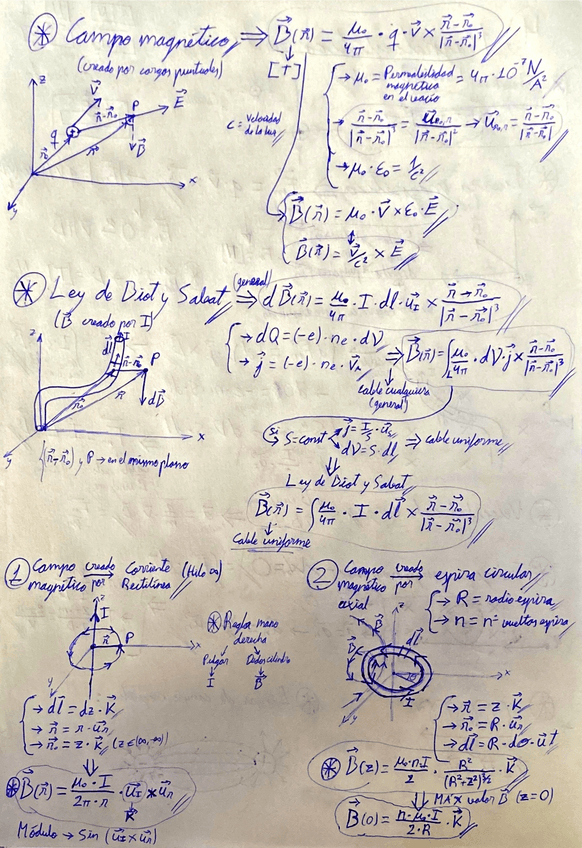 * Campo magnético ⇒ B⃗(r⃗) = μ₀/4π · q · v⃗ × (r⃗-r⃗₀)/|r⃗-r⃗₀|³
(creado por cargas puntuales)
[T]
→ μ₀ = Permeabilidad magnética en el vacío = 4π·10⁻⁷ N/A²
c = velocidad de la luz
→ (r⃗-r⃗₀)/|r⃗-r⃗₀|³ = u⃗r₀,r/|r⃗-r⃗₀|² → u⃗r₀,r = (r⃗-r⃗₀)/|r⃗-r⃗₀|
→ μ₀·ε₀ = 1/c²
B⃗(r⃗) = μ₀·v⃗×ε₀·E⃗
B⃗(r⃗) = v⃗/c² × E⃗
z
v⃗
r⃗-r⃗₀
P
E⃗
q
r⃗₀
r⃗
B⃗
x
y
* Ley de Biot y Sabat (general) ⇒ dB⃗(r⃗) = μ₀/4π · I · dl · u⃗I × (r⃗-r⃗₀)/|r⃗-r⃗₀|³
(B⃗ creado por I)
→ dQ = (-e)·nₑ·dV
→ j⃗ = (-e)·nₑ·v⃗ₙ
⇒ B⃗(r⃗) = ∫ μ₀/4π · dV · j⃗ × (r⃗-r⃗₀)/|r⃗-r⃗₀|³
cable cualquiera
(general)
z
I
dl⃗
r⃗-r⃗₀
P
r⃗₀
r⃗
dB⃗
x
y
(r⃗-r⃗₀) y P → en el mismo plano
Si → S = const
j⃗ = I/S · u⃗I
dV = S·dl
⇒ cable uniforme
⇓
Ley de Biot y Sabat
B⃗(r⃗) = ∫ μ₀/4π · I · dl⃗ × (r⃗-r⃗₀)/|r⃗-r⃗₀|³
Cable uniforme
1 Campo magnético creado por Corriente Rectilínea (Hilo ∞)
z
I
r⃗
P
x
y
* Regla mano derecha
Pulgar
Dedos cilindro
I
B⃗
→ dl⃗ = dz·k⃗
→ r⃗ = r·u⃗r
→ r⃗₀ = z·k⃗ (z∈(∞,∞))
⇓
* B⃗(r⃗) = μ₀·I/2π·r · u⃗I × u⃗r
k⃗
Módulo → Sin (u⃗I × u⃗r)
2 Campo magnético axial creado por espira circular
→ R = radio espira
→ n = nº vueltas espira
z
B⃗
dl⃗
I
x
y
→ r⃗ = z·k⃗
→ r⃗₀ = R·u⃗r
→ dl⃗ = R·dσ·u⃗t
* B⃗(z) = μ₀·n·I/2 · R²/(R²+z²)^3/2 · k⃗
⇓ MAX valor B⃗ (z=0)
B⃗(0) = n·μ₀·I/2·R · k⃗